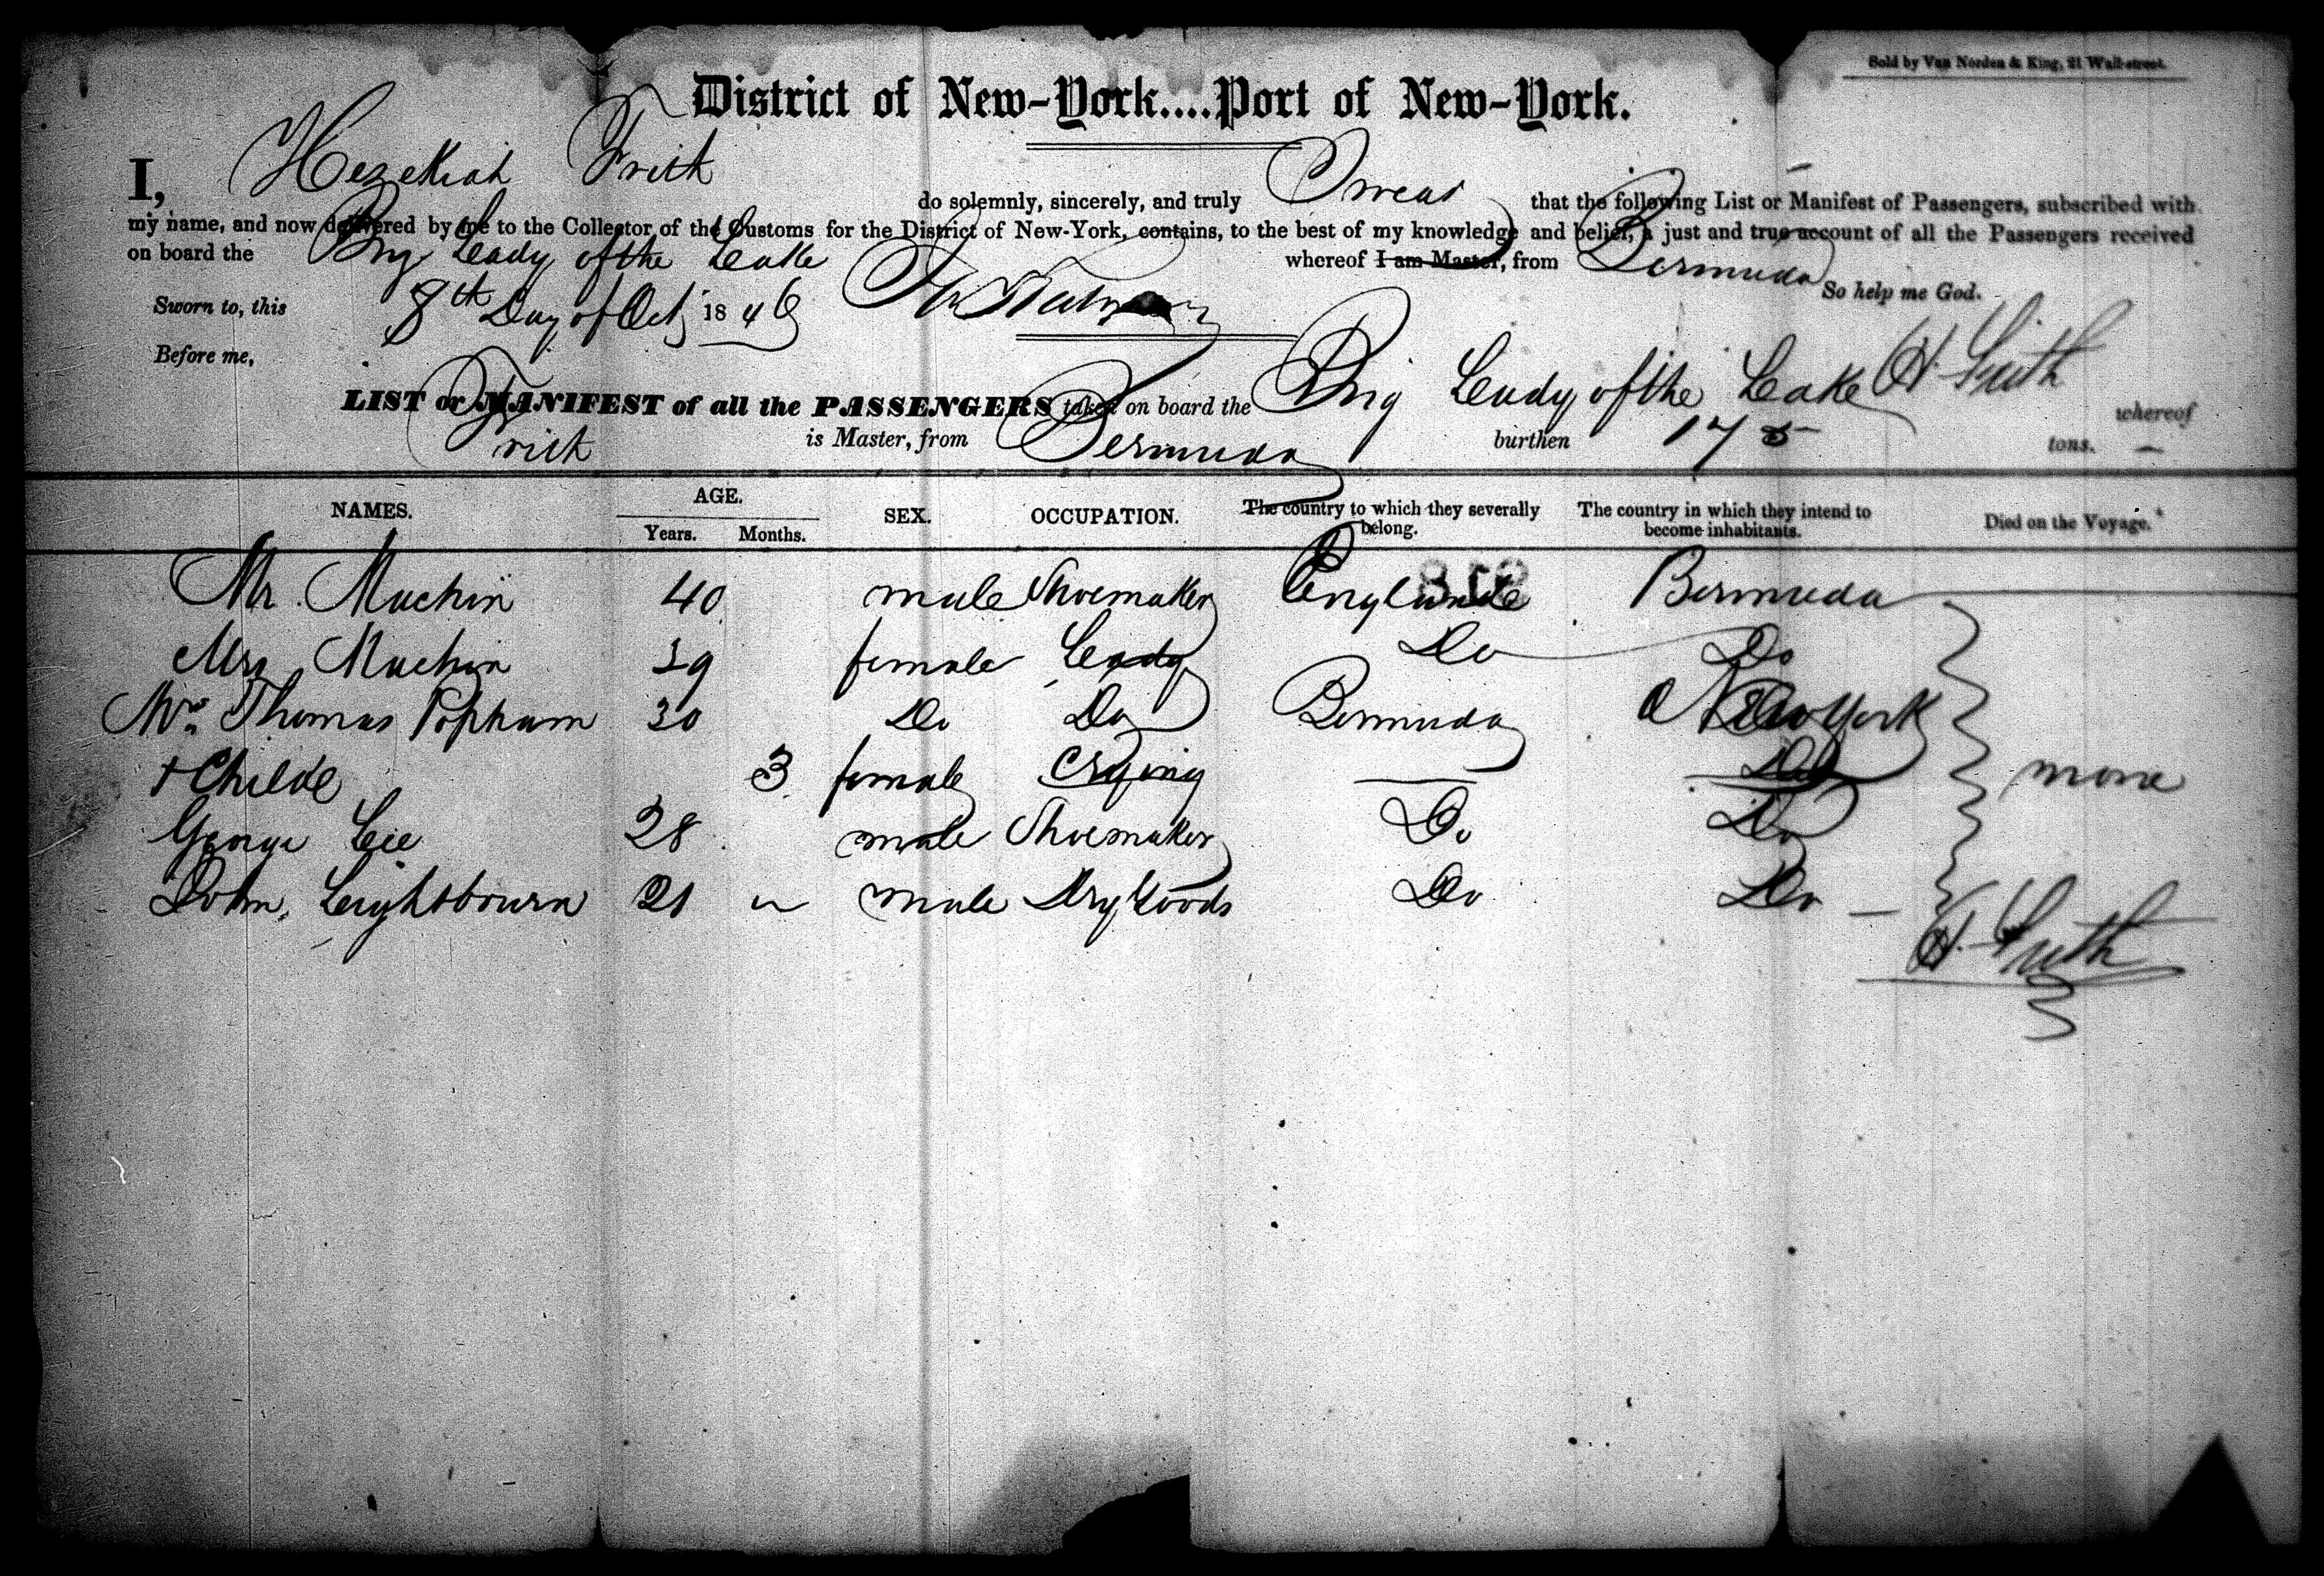 Sold by Van Norden & King, 21 Wall-street.
District of New-York....Port of New-York.
I, Hezekiah Frith do solemnly, sincerely, and truly Swear that the following List or Manifest of Passengers, subscribed with
my name, and now delivered by me to the Collector of the Customs for the District of New-York, contains, to the best of my knowledge and belief, a just and true account of all the Passengers received
on board the Brig Lady of the Lake whereof I am Master, from Bermuda
Sworn to, this 8th Day of Oct 1846 So help me God.
Before me, H Frith
LIST or MANIFEST of all the PASSENGERS taken on board the Brig Lady of the Lake whereof
Frith is Master, from Bermuda burthen 175 tons.
NAMES. AGE. Years. Months. SEX. OCCUPATION. The country to which they severally belong. The country in which they intend to become inhabitants. Died on the Voyage.
Mr. Machin 40 male Shoemaker England Bermuda
Mrs Machin 39 female Lady Do Do
Mrs Thomas Popham 30 Do Do Bermuda New York
+ Childe 3 female Crying
George Lee 28 male Shoemaker Do Do
John Leightbourn 21 male Dry Goods Do Do
none
H Frith